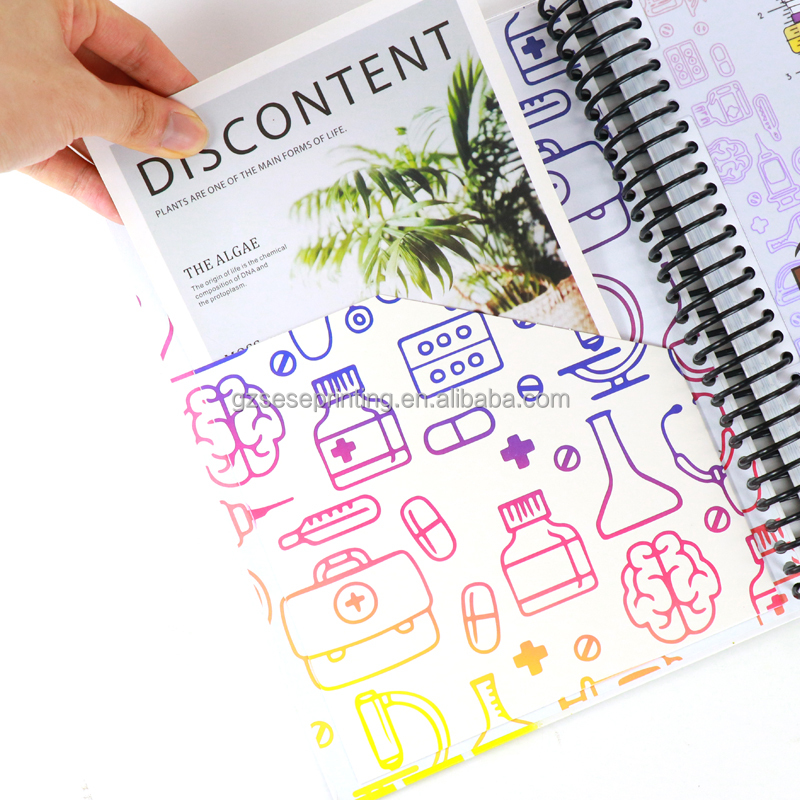 DISCONTENT
PLANTS ARE ONE OF THE MAIN FORMS OF LIFE.
THE ALGAE
The origin of life is the chemical
composition of DNA and
the protoplasm.
MOSS
gzseseprinting.en.alibaba.com
2
3